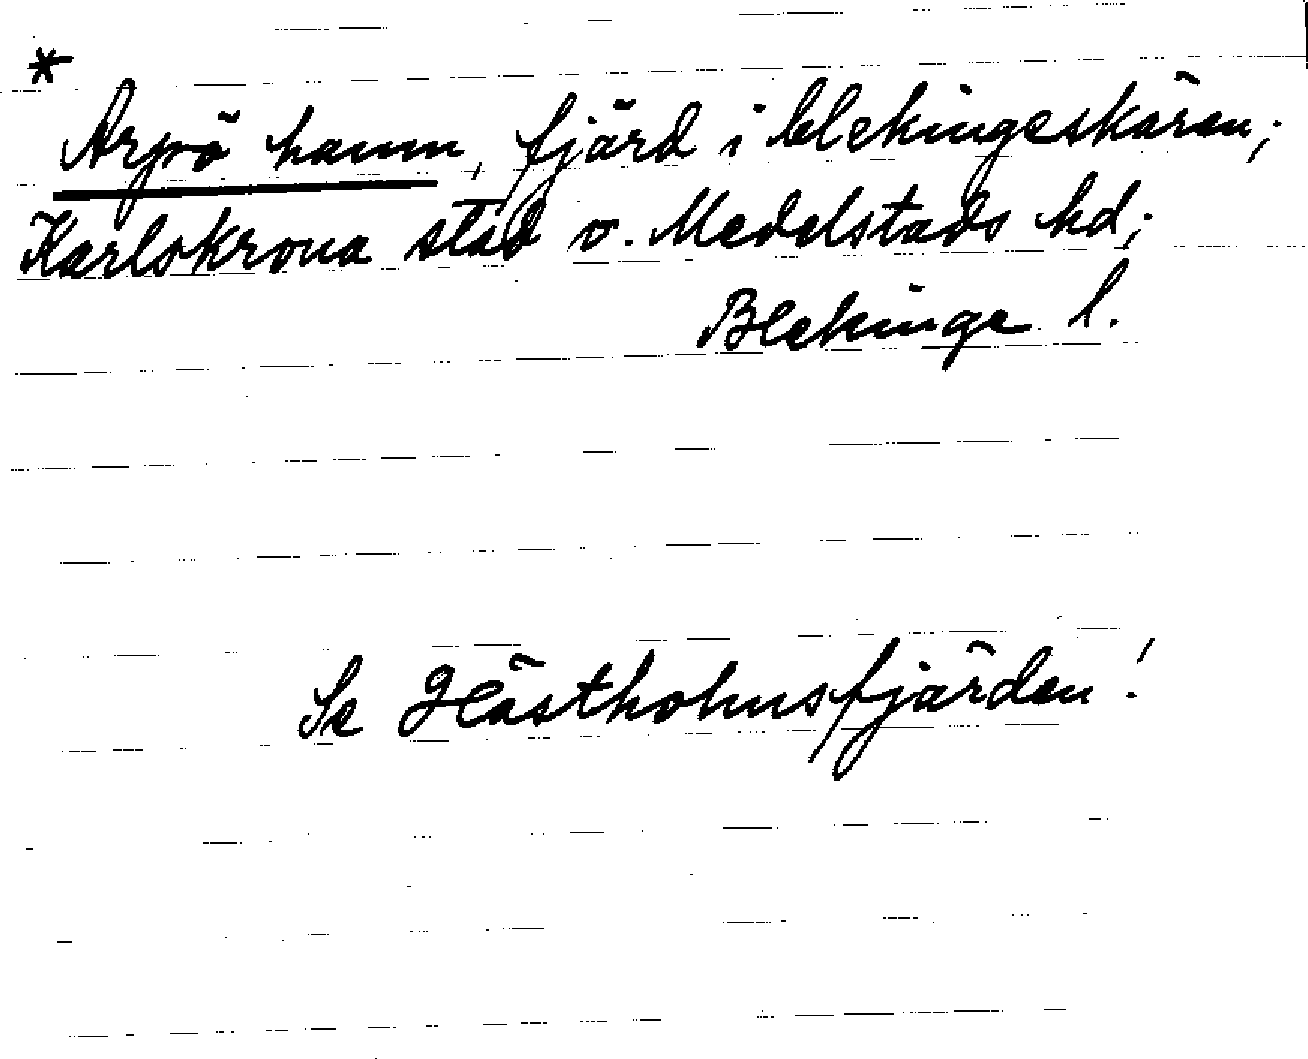 *
Arpö hamn, fjärd i blekingeskären;
Karlskrona stad o. Medelstads hd;
Blekinge l.
Se Hästholmsfjärden!